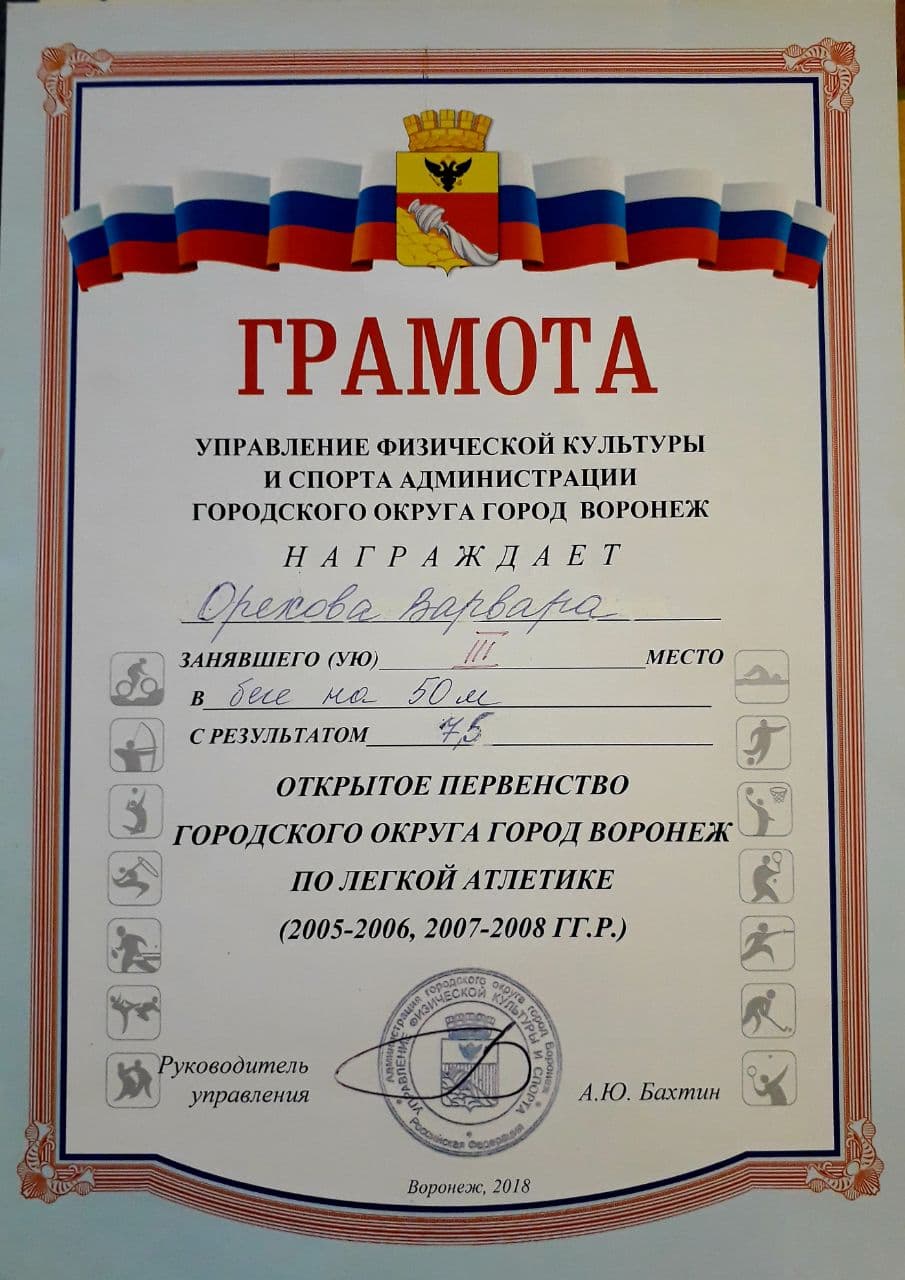 ГРАМОТА
УПРАВЛЕНИЕ ФИЗИЧЕСКОЙ КУЛЬТУРЫ
И СПОРТА АДМИНИСТРАЦИИ
ГОРОДСКОГО ОКРУГА ГОРОД ВОРОНЕЖ
НАГРАЖДАЕТ
Орехова Варвара
ЗАНЯВШЕГО (УЮ) III МЕСТО
В беге на 50 м
С РЕЗУЛЬТАТОМ 7,5
ОТКРЫТОЕ ПЕРВЕНСТВО
ГОРОДСКОГО ОКРУГА ГОРОД ВОРОНЕЖ
ПО ЛЕГКОЙ АТЛЕТИКЕ
(2005-2006, 2007-2008 ГГ.Р.)
Администрация городского округа город Воронеж
УПРАВЛЕНИЕ ФИЗИЧЕСКОЙ КУЛЬТУРЫ И СПОРТА
Российская Федерация
Руководитель
управления А.Ю. Бахтин
Воронеж, 2018